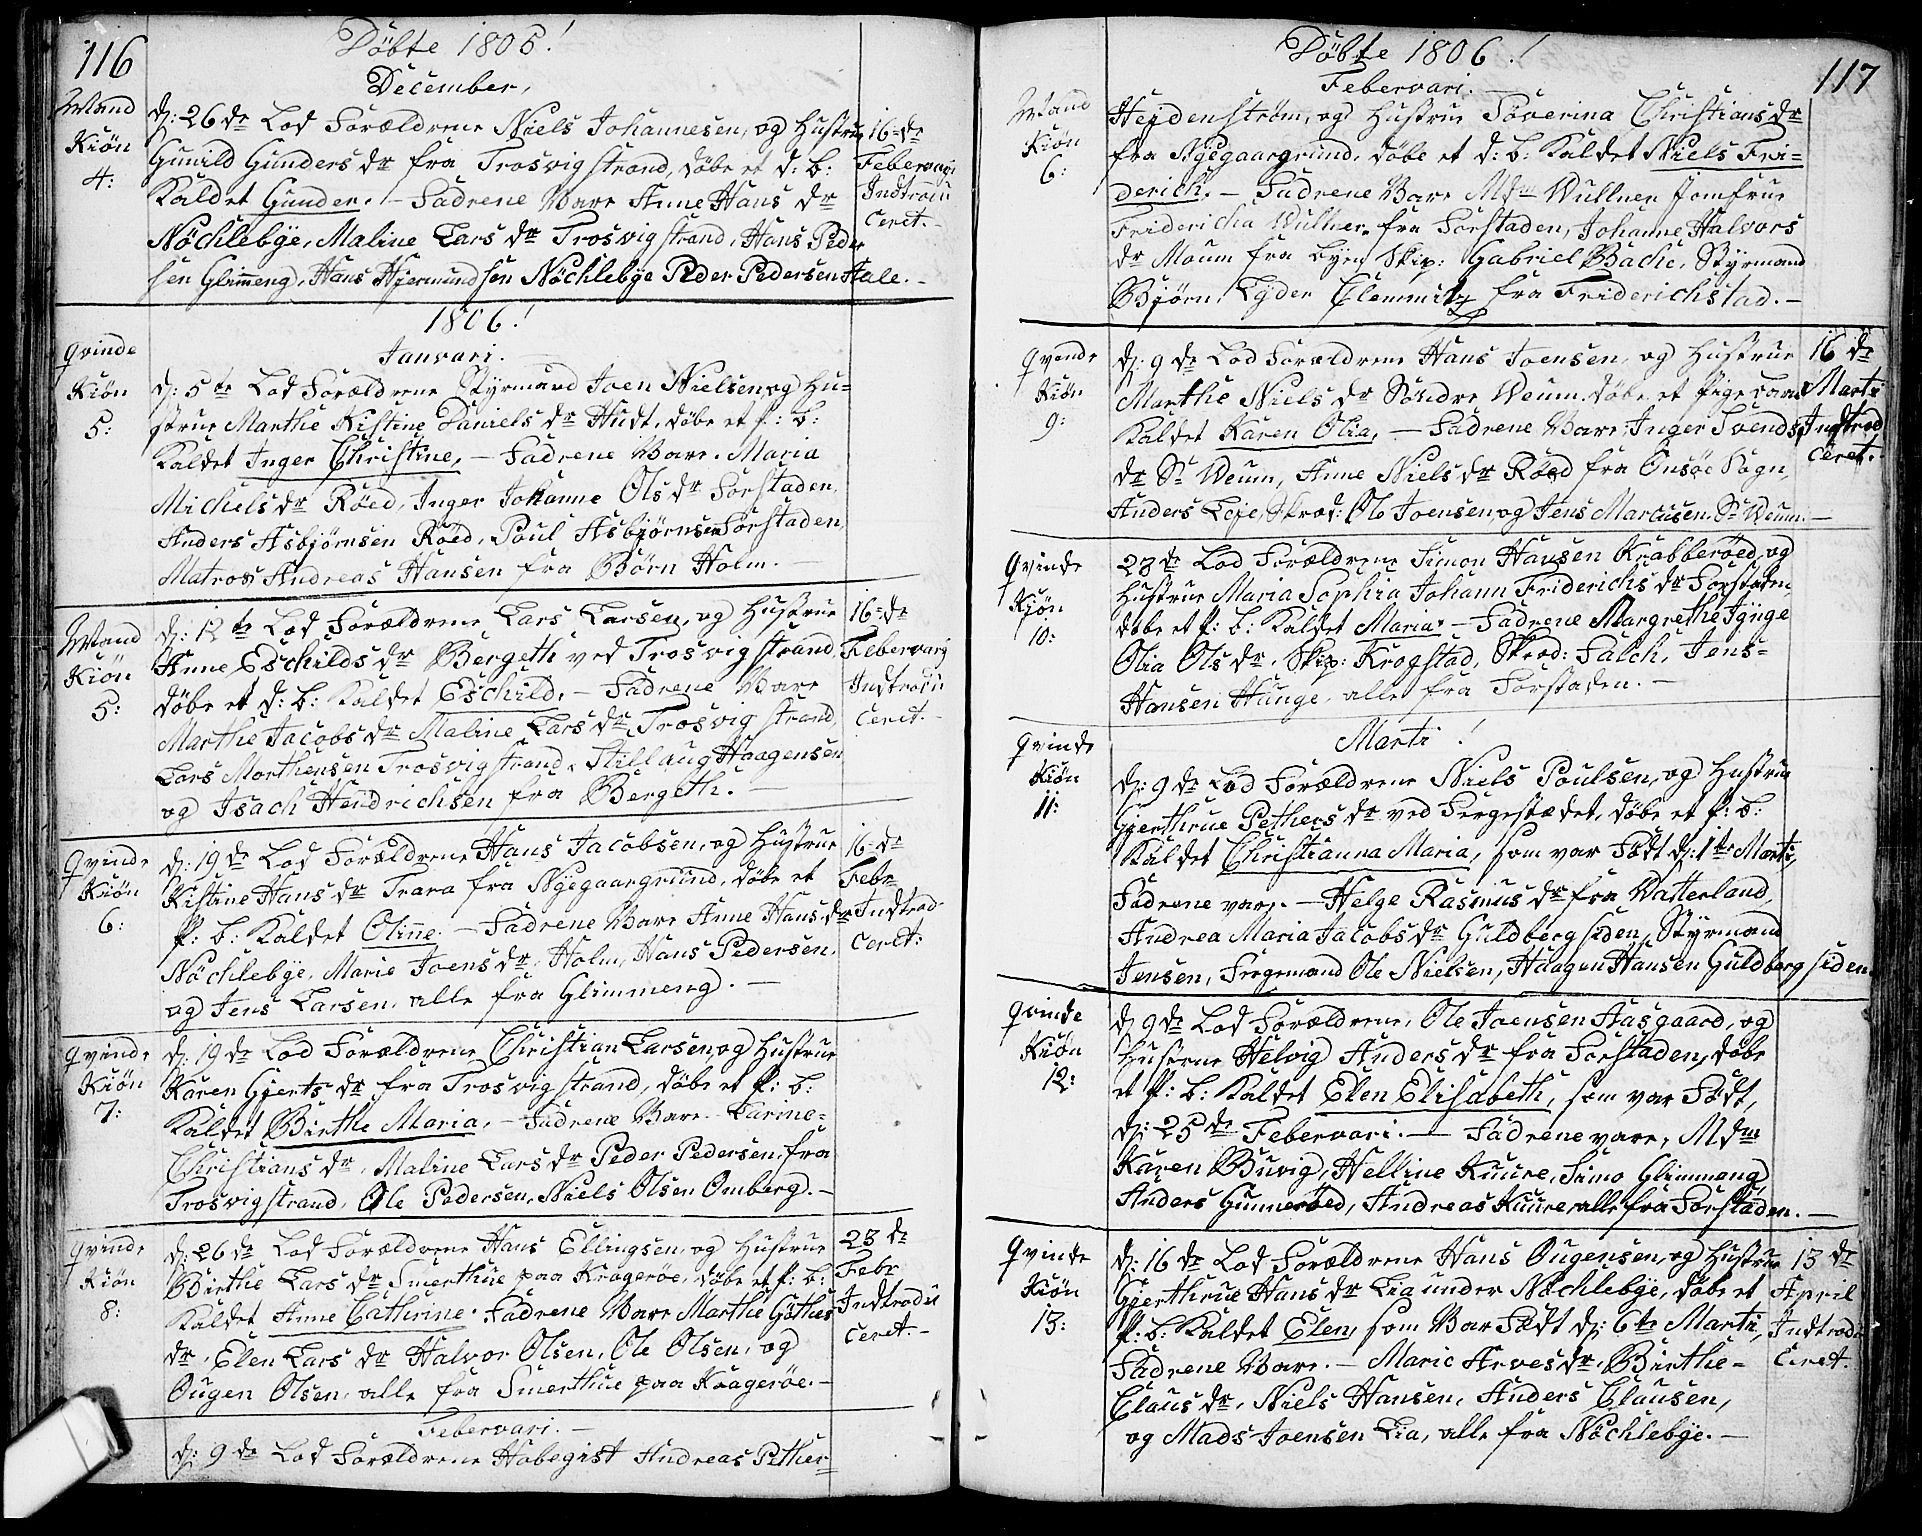 116
Döbte 1805!
December,
Mand
Kiön
4:
d: 26de Lod Forældrene Niels Johannesen, og Hustrue
Gunild Gunders dr fra Trosvig strand, döbe et d: b:
Kaldet Gunder. - Fadrene Vare Anne Hans dr
Nöchlebye, Maline Lars dr Trosvig strand, Hans Peder
sen Glimmeng, Hans Hjermundsen Nöchlebye Peder Pedersen Stale. -
16-de
Febervari
Indtrodu
ceret. -
1806!
Janvari.
qvinde
Kiön
5:
d: 5te Lod Forældrene Styrmand Joen Nielsen, og Hu=
strue Marthe Kistine Daniels dr Hudt, döbe et p: b:
Kaldet Inger Christine, - Fadrene Vare. Maria
Michels dr Röed, Inger Johanne Ols dr Forstaden,
Anders Asbjörnsen Röed, Poul Asbjörnsen Forstaden,
Matros Andreas Hansen fra Börn Holm. -
Mand
Kiön
5:
d: 12te Lod Forældrene Lars Larsen, og Hustrue
Anne Eschilds dr Bergeth ved Trosvig strand,
döbe et d: b: Kaldet Eschild. - Fadrene Vare
Marthe Jacobs dr Maline Lars dr Trosvig strand,
Lars Morthensen Trosvig strand, Stillaug Haagensen
og Isach Hendrichsen fra Bergeth. -
16-de
Febervarj
Indtrodu
ceret. -
qvinde
Kiön
6:
d: 19de Lod Forældrene Hans Jacobsen, og Hustrue
Kistine Hans dr Trara fra Nyegaargrund, döbe et
p: b: Kaldet Oline. - Fadrene Vare Anne Hans dr
Nöchlebye, Marie Joens dr Holm, Hans Pedersen,
og Jens Larsen, alle fra Glimmeng. -
16-de
Febr
Indtrod
ceret:
qvinde
Kiön
7:
d: 19de Lod Forældrene Christian Larsen, og Hustrue
Karen Gjerts dr fra Trosvig strand, döbe et p: b:
Kaldet Birthe Maria, - Fadrene Vare -
Christians dr, Maline Lars dr Peder Pedersen, fra
Trosvig strand, Ole Pedersen, Niels Olsen Omberg. -
qvinde
Kiön
8:
d: 26de Lod Forældrene Hans Ellingsen, og Hustrue
Birthe Lars dr Smerthue paa Kragerøe, döbe et p: b:
Kaldet Anne Cathrine. Fadrene Vare Marthe Göthes
dr, Elen Lars dr Halvor Olsen, Ole Olsen, og
Ougen Olsen, alle fra Smerthue paa Kragerøe. -
23de
Febr
Indtrodu
ceret. -
Febervari. -
d: 9de Lod Forældrene Habegist Andreas Pether=
Döbte 1806!
117
Febervari. -
Mand
Kiön
6:
Heidenström, og Hustrue Söverina Christians dr
fra Nyegaargrund, döbe et d: b: Kaldet Niels Fri=
derich. - Fadrene Vare Mdm Wullner Jomfrue
Fridericha Wullner. fra Forstaden, Johanne Halvors
dr Moum fra Byen, Skip: Gabriel Bache, Styrmand
Björn, Eyder Clemmitz fra Friderichstad. -
qvende
Kiön
9:
d: 9de Lod Forældrene Hans Joensen, og Hustrue
Marthe Niels dr Söndre Weum, döbe et Pigebarn
Kaldet Karen Olia, - Fadrene Vare: Inger Svends
dr Sr Weum, Anne Niels dr Röed fra Onsöe Sogn,
Anders Leje, Skræd: Ole Joensen, og Jens Marcusen Sr Weum. -
16de
Marti
Indtrod
ceret:
qvinde
Kjön
10:
23de Lod Forældrene Simon Hansen Krabberöed, og
Hustrue Maria Sophia Johann Friderichs dr Forstaden
döbe et p: b: Kaldet Maria. - Fadrene Margrethe Tynge
Olia Ols dr, Skip: Krogstad, Skræd: Falch, Jens=
Hansen Hunge, alle fra Forstaden. -
Marti!
qvinde
Kiön
11:
d: 9de Lod Forældrene Niels Poulsen, og Hustrue
Gjerthrue Pethers dr ved Fergestædet, döbe et p: b:
Kaldet Christianna Maria, som var Födt d: 1te Marti,
Fadrene vare. - Helge Rasmus dr fra Vatterland,
Andrea Maria Jacobs dr Guldberg siden, Styrmand
Jensen, Fergemand Ole Nielsen, Haagen Hansen Guldberg siden
qvinde
Kiön
12:
d: 9de Lod Forældrene, Ole Joensen Aasgaard, og
Hustrue Helvig Anders dr fra Forstaden, döbe
et p: b: Kaldet Elen Elisabeth, som var Födt,
d: 25de Febervari. - Fadrene vare, Mdm
Karen Buvig, Helline Kuure, Simo Glimmeng,
Anders Gunneröed, Andreas Kuure, alle fra Forstaden. -
qvinde
Kiön
13:
d: 16de Lod Forældrene Hans Ougensen, og Hustrue
Gjerthrue Hans dr Lia under Nöchlebye, döbe et
p: b: Kaldet Elen, som Var Födt d: 6te Marti,
Fadrene Vare. - Marie Arves dr, Birthe-
Claus dr, Niels Hansen, Anders Clausen,
og Mads Joensen Lia, alle fra Nöchlebye. -
13de
April
Indtrodu
ceret.